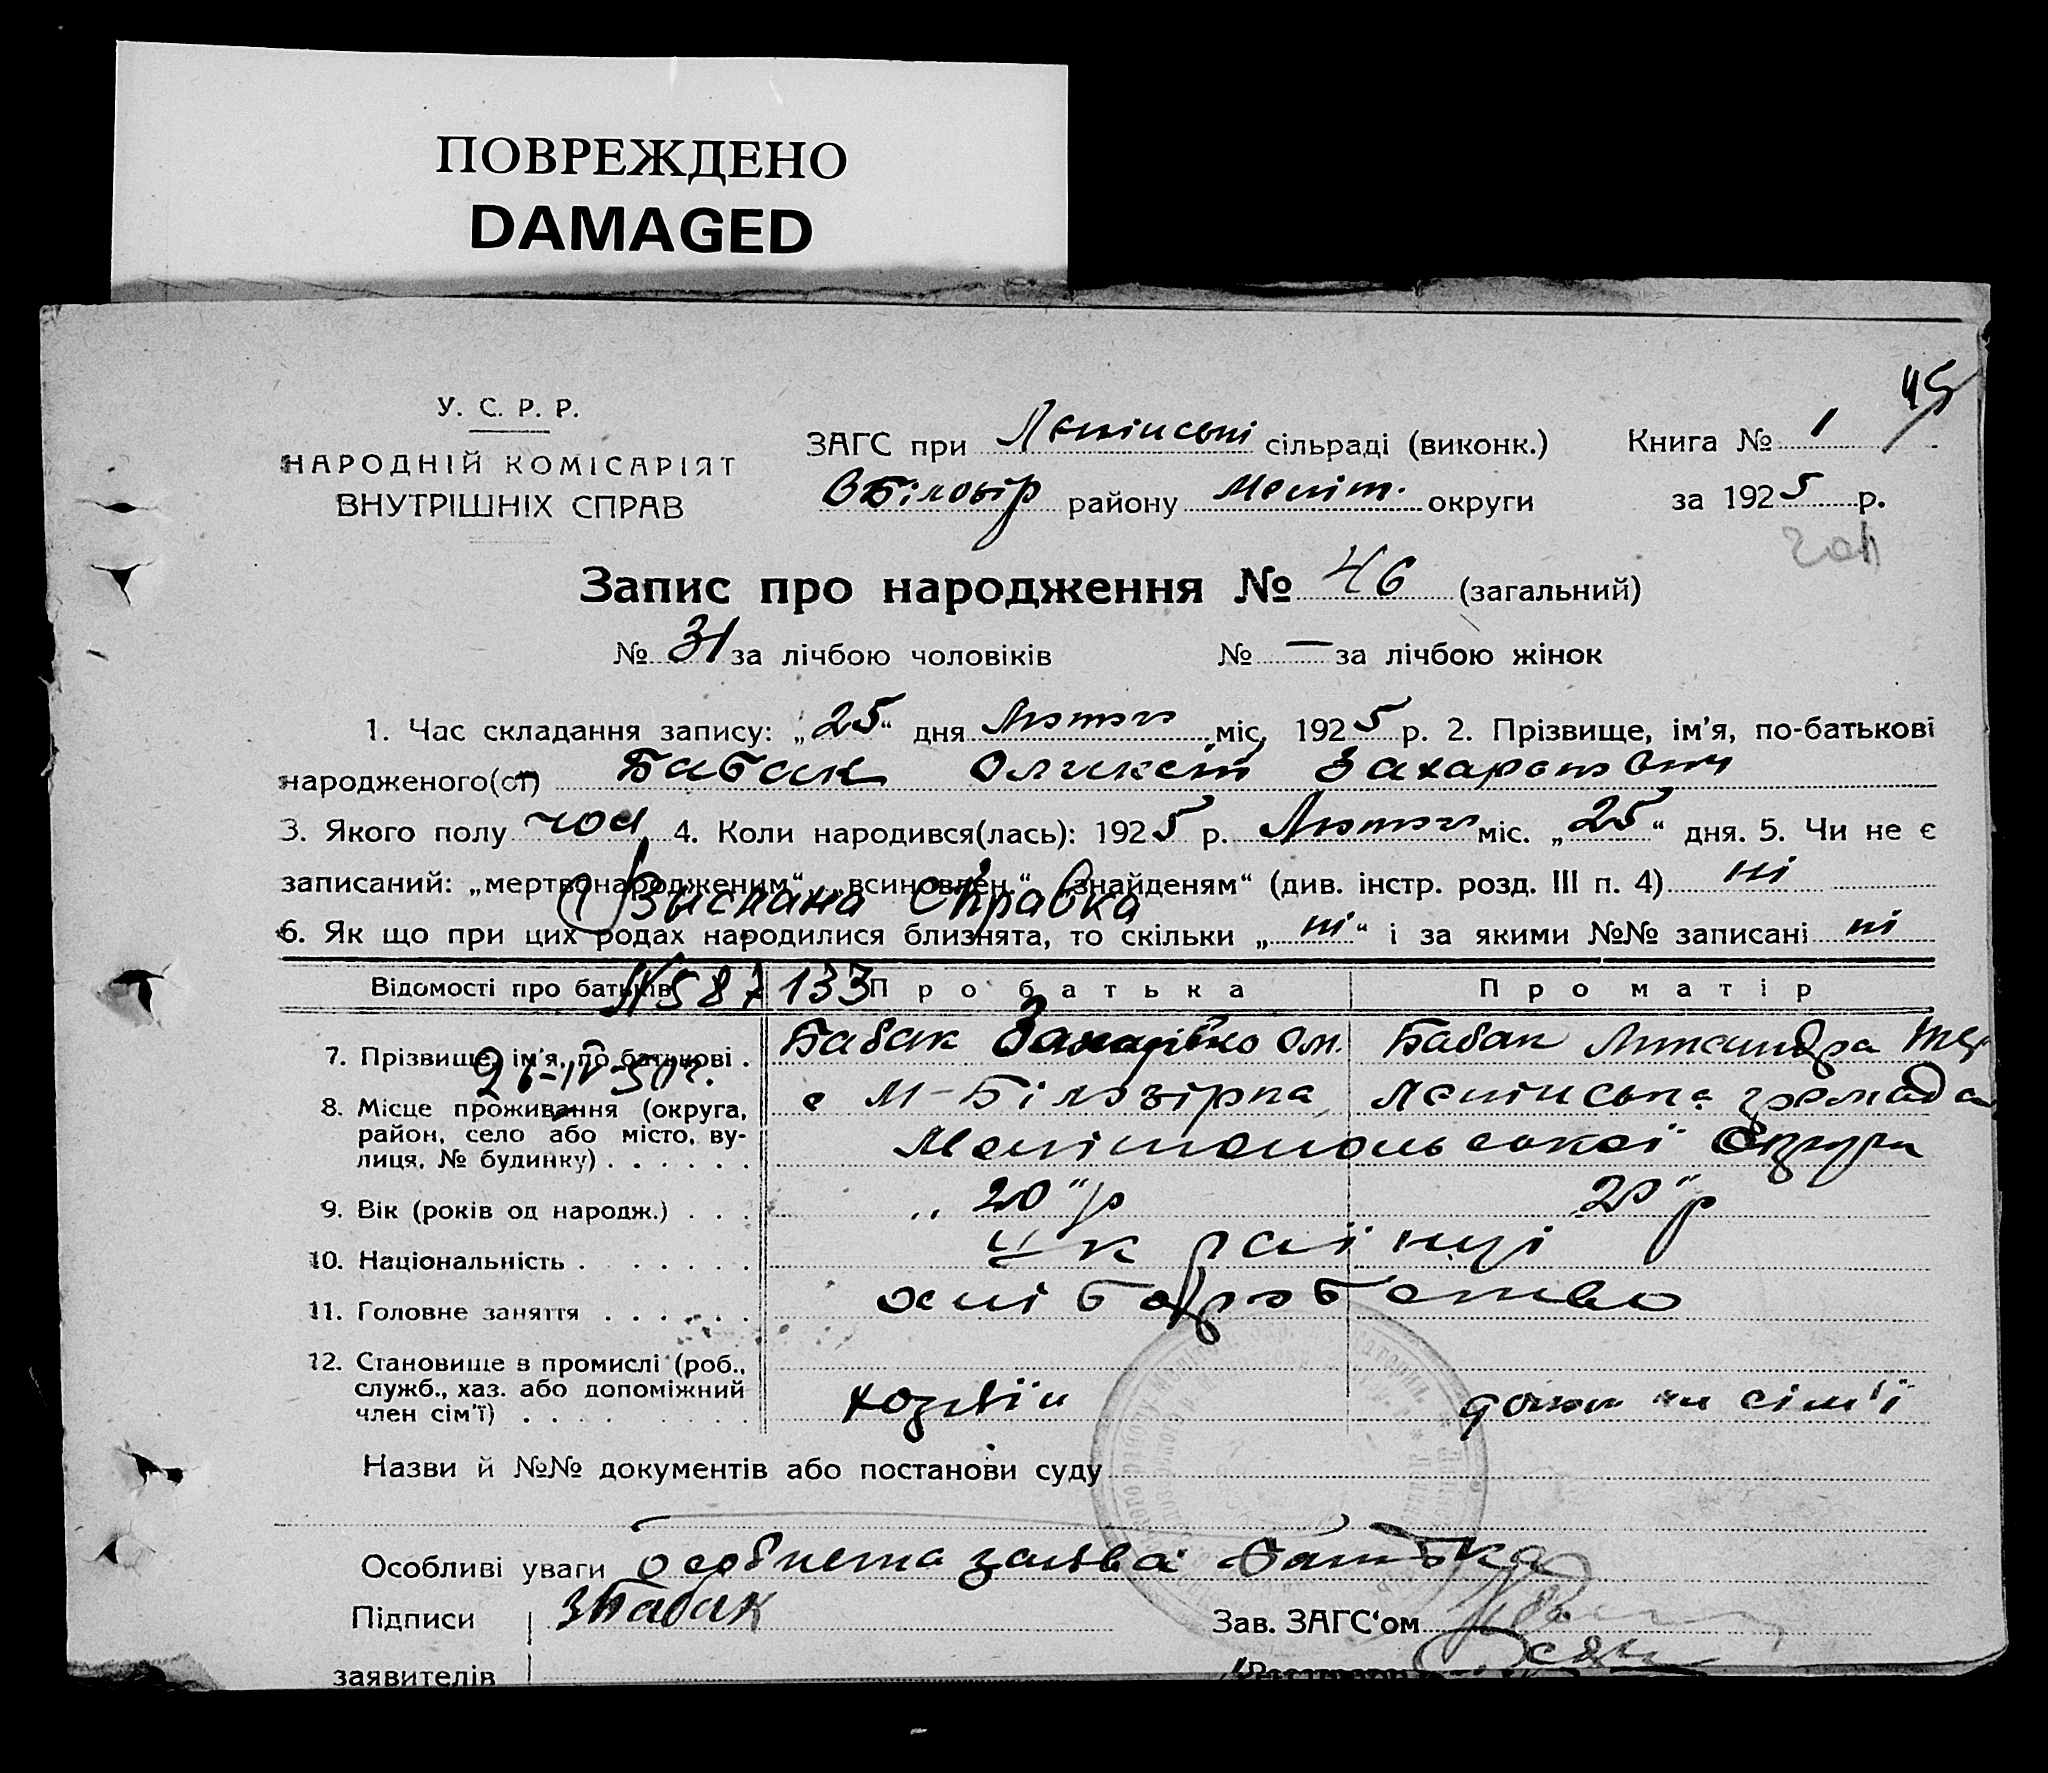 ПОВРЕЖДЕНО
DAMAGED
45
У. С. Р. Р.
НАРОДНІЙ КОМІСАРІЯТ
ВНУТРІШНІХ СПРАВ
ЗАГС при Ленінські сільраді (виконк.)
Книга № 1
ВБілозір району Меліт. округи
за 1925 р.
Запис про народження № 46 (загальний)
№ 31 за лічбою чоловіків № — за лічбою жінок
1. Час складання запису: „25“ дня Лютого міс. 1925 р. 2. Прізвище, ім'я, по-батькові
народженого(ої) Бабак Олексій Захарович
3. Якого полу чол 4. Коли народився(лась): 1925 р. Лютого міс. „25“ дня. 5. Чи не є
записаний: „мертвонародженим“, „всиновлен.“ „знайденям“ (див. інстр. розд. III п. 4) ні
справка
6. Як що при цих родах народилися близнята, то скільки „ні“ і за якими №№ записані ні
Відомості про батьків Про батька Про матір
№587133
7. Прізвище, ім'я, по батькові . Бабак Ом. Бабак
8. Місце проживання (округа, район, село або місто, вулиця, № будинку) . . . . . . с М-Білозірка Ленінська громада
Мелітопольської Округи
9. Вік (років од народж.) . . . 20 р 20 р
10. Національність . . . . . . . Українці
11. Головне заняття . . . . . . хліборобство
12. Становище в промислі (роб., служб., хаз. або допоміжний член сім'ї) . . . . . . . . хозяїн сім'ї
Назви й №№ документів або постанови суду
Особливі уваги особиста заява батька
Підписи ЗБабак Зав. ЗАГС'ом
заявителів